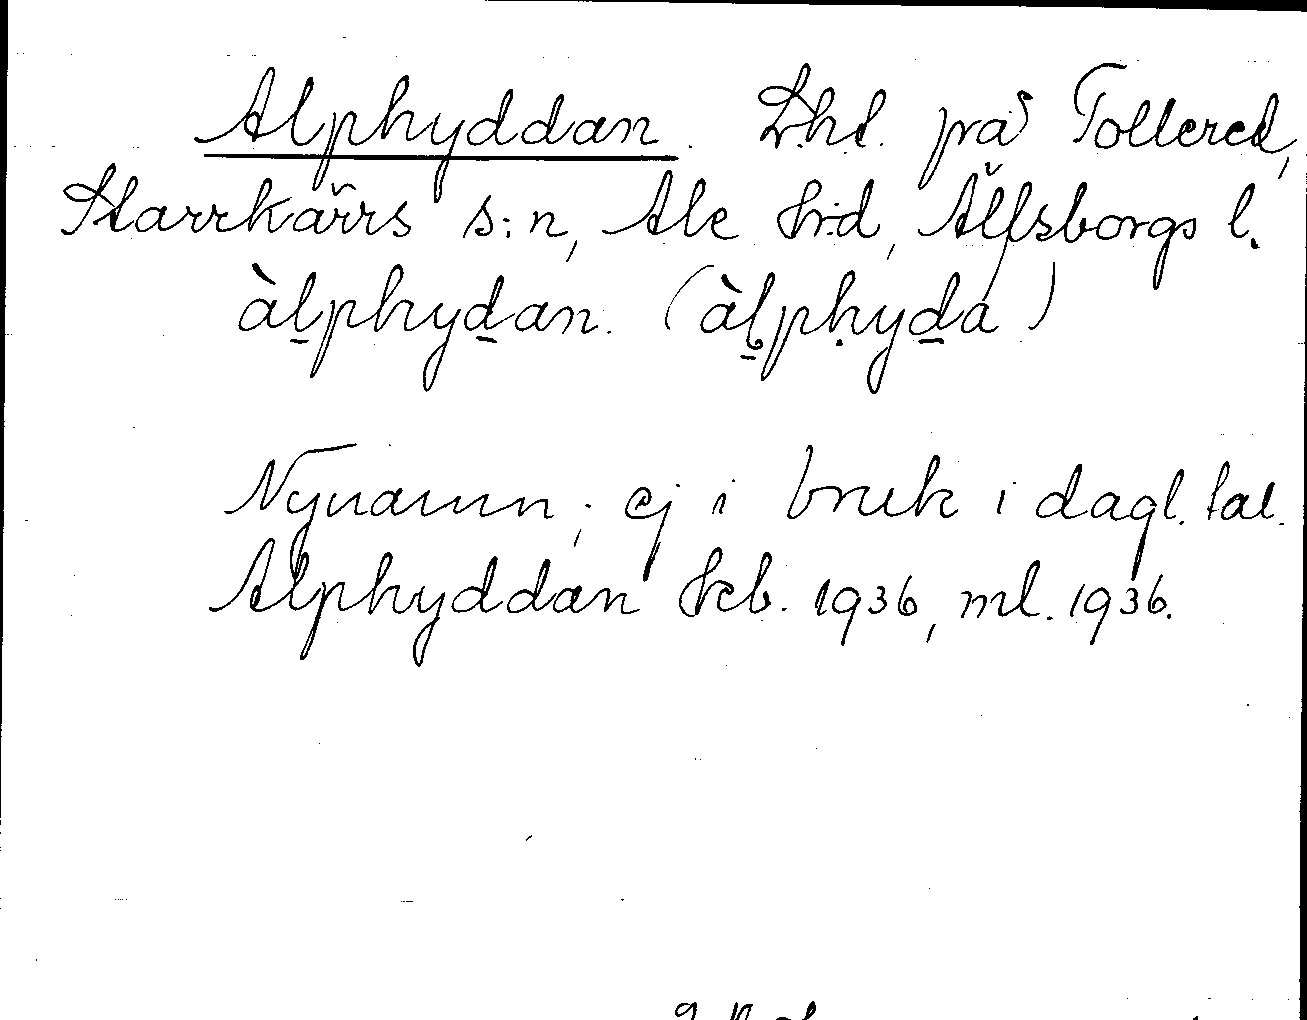 Alphyddan. Lhl. på Tollered,
Starrkärrs s:n, Ale hrd, Älfsborgs l.
àl̠phyd̠an. (àl̠pḥyd̠a)
Nynamn; ej i bruk i dagl. tal.
Alphyddan Jcb. 1936, ml. 1936.